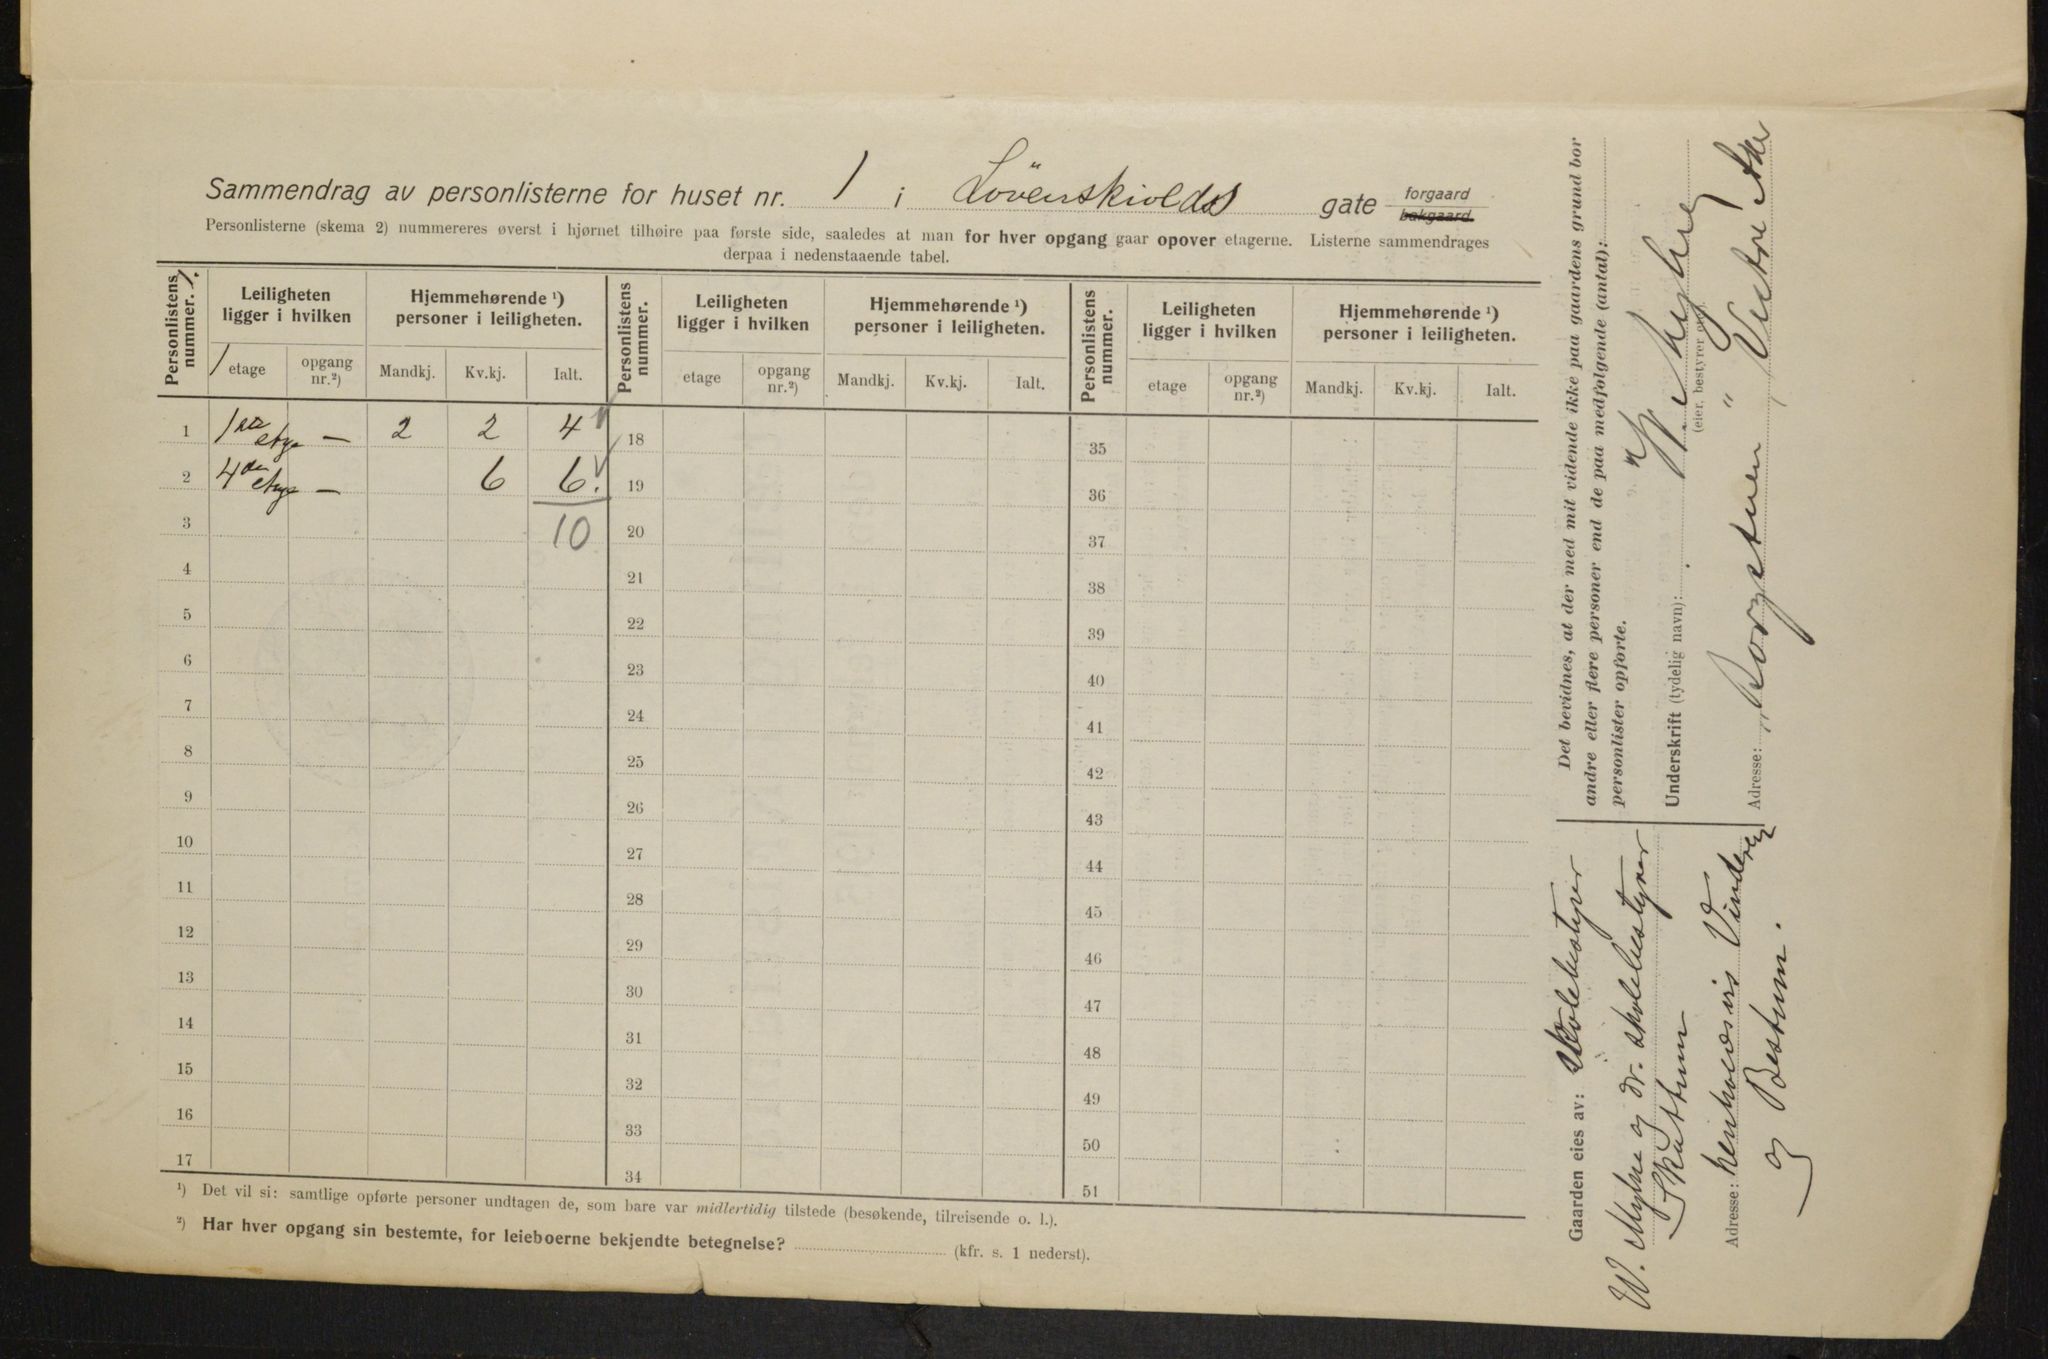 Sammendrag av personlisterne for huset nr. 1 i Lövenskiolds gate forgaard bakgaard
Personlisterne (skema 2) nummereres øverst i hjørnet tilhøire paa første side, saaledes at man for hver opgang gaar opover etagerne. Listerne sammendrages
derpaa i nedenstaaende tabel.
Personlistens nummer. Leiligheten ligger i hvilken Hjemmehørende ¹) personer i leiligheten. Personlistens nummer. Leiligheten ligger i hvilken Hjemmehørende ¹) personer i leiligheten. Personlistens nummer. Leiligheten ligger i hvilken Hjemmehørende ¹) personer i leiligheten.
etage opgang nr.²) Mandkj. Kv.kj. Ialt. etage opgang nr.²) Mandkj. Kv.kj. Ialt. etage opgang nr.²) Mandkj. Kv.kj. Ialt.
1 1ste etage — 2 2 4 18 35
2 4de etage — 6 6. 19 36
3 10 20 37
4 21 38
5 22 39
6 23 40
7 24 41
8 25 42
9 26 43
10 27 44
11 28 45
12 29 46
13 30 47
14 31 48
15 32 49
16 33 50
17 34 51
¹) Det vil si: samtlige opførte personer undtagen de, som bare var midlertidig tilstede (besøkende, tilreisende o. l.).
²) Har hver opgang sin bestemte, for leieboerne bekjendte betegnelse? (kfr. s. 1 nederst).
Det bevidnes, at der med mit vidende ikke paa gaardens grund bor
andre eller flere personer end de paa medfølgende (antal):
personlister opførte.
Underskrift (tydelig navn): W. Myhre
(eier, bestyrer e
Adresse: Vestre Aker
Gaarden eies av: skolebestyrer
W. Myhre og dr. skolebestyrer
Skattum
Adresse: henholdsvis Vinderen
og Bestum.